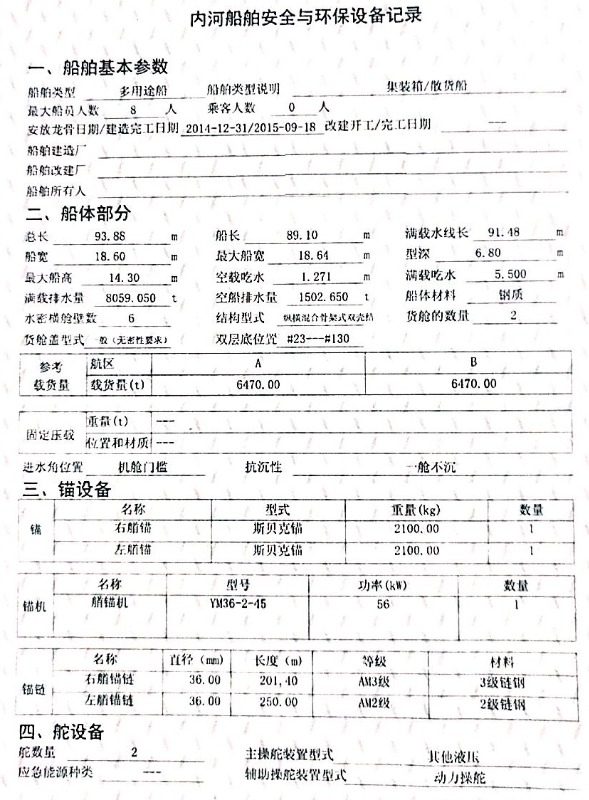 内河船舶安全与环保设备记录
一、船舶基本参数
船舶类型 多用途船 船舶类型说明 集装箱/散货船
最大船员人数 8 人 乘客人数 0 人
安放龙骨日期/建造完工日期 2014-12-31/2015-09-18 改建开工/完工日期 ---
船舶建造厂
船舶改建厂
船舶所有人
二、船体部分
总长 93.88 m 船长 89.10 m 满载水线长 91.48 m
船宽 18.60 m 最大船宽 18.64 m 型深 6.80 m
最大船高 14.30 m 空载吃水 1.271 m 满载吃水 5.500 m
满载排水量 8059.050 t 空船排水量 1502.650 t 船体材料 钢质
水密横舱壁数 6 结构型式 纵横混合骨架式双壳结 货舱的数量 2
货舱盖型式 一般（无密性要求） 双层底位置 #23---#130
参考载货量 航区 A B
载货量(t) 6470.00 6470.00
固定压载 重量(t) ---
位置和材质 ---
进水角位置 机舱门槛 抗沉性 一舱不沉
三、锚设备
锚 名称 型式 重量(kg) 数量
右艏锚 斯贝克锚 2100.00 1
左艏锚 斯贝克锚 2100.00 1
锚机 名称 型号 功率(kW) 数量
艏锚机 YM36-2-45 56 1
锚链 名称 直径（mm） 长度（m） 等级 材料
右艏锚链 36.00 201.40 AM3级 3级链钢
左艏锚链 36.00 250.00 AM2级 2级链钢
四、舵设备
舵数量 2 主操舵装置型式 其他液压
应急能源种类 --- 辅助操舵装置型式 动力操舵